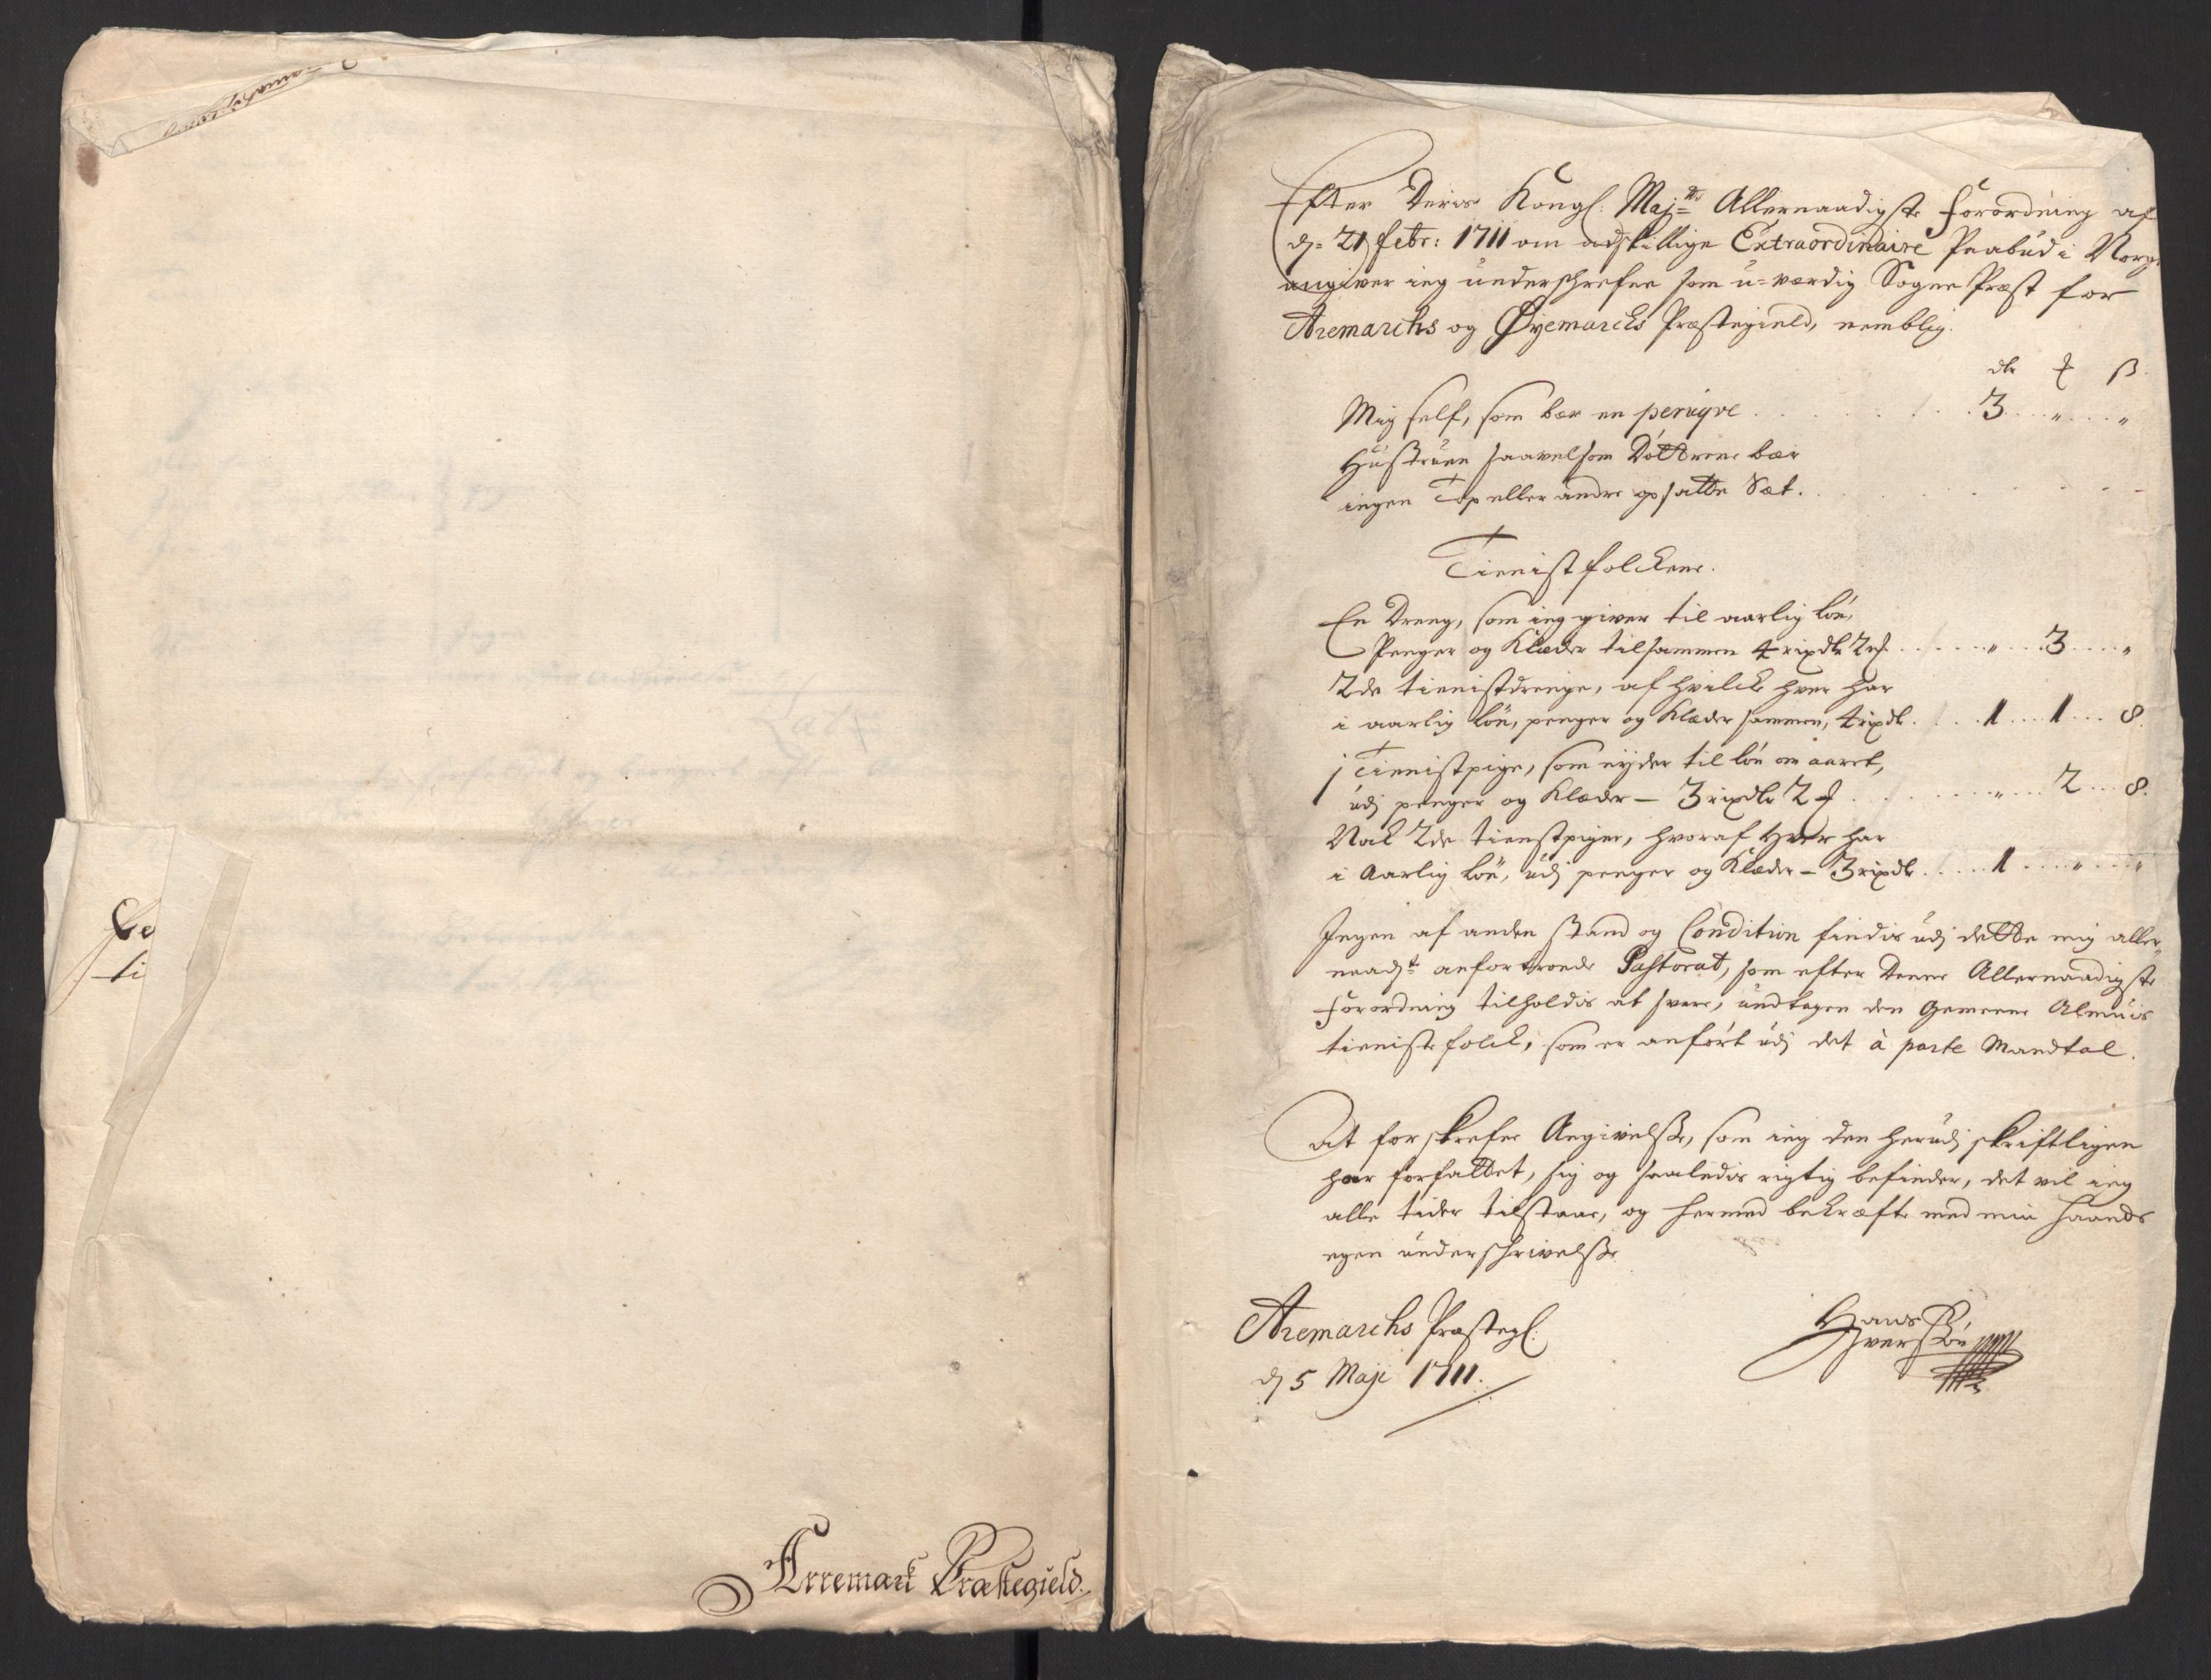 Arremark Præstegield.
Efter Deris Kongl: Maj:ts Allernaadigste Forordning af
d: 21 febr: 1711 om adskillige Extraordinaire Paabud i Norge
angiver ieg underschrefne som u-værdig Sogne Præst for
Aremarchs og Øyemarchs Præstegield, nemblig.
dlr ß
Mig self, som bær en peruqve 3 " "
Hustruen saavelsom Døttrene bær
ingen Top eller andre opsatte Sæt.
Tienistfolckene.
En Dreng, som ieg giver til aarlig løn,
Penger og Klæder tilsammen 4 rixdlr 2 " 3 "
2de tienistdrenge, af hvilcke hver har
i aarlig løn, penger og Klæder sammen, 4 rixdlr. 1 1 8.
1 Tienistpige, som nyder til løn om aaret,
udj penger og Klæder – 3 rixdlr 2 " 2 8.
Nok 2de tienstpiger, hvoraf Hver har
i Aarlig løn, udj penger og Klæder – 3 rixdlr. 1 " "
Ingen af anden Stand og Condition findis udj dette mig aller-
naadt: anfortroede Pastorat, som efter Denne Allernaadigste
Forordning tilholdis at svare, undtagen den Gemeene Almuis
tieniste folck, som er anført udj det à parte Mandtal.
At forskrefne Angivelße, som ieg den herudj skriftligen
har forfattet, sig og saaledis rigtig befinder, det vil ieg
alle tider tilstaae, og hermed bekræfte med min Haands
egen underschrivelße
Aremarchs Præstegl:
d 5 Maji 1711.
Hans
Iversøn